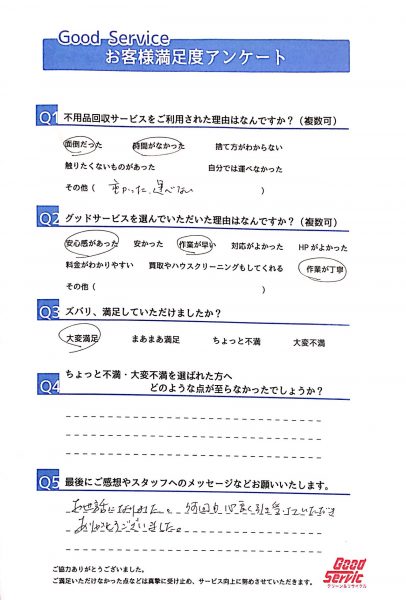 Good Service
お客様満足度アンケート
Q1 不用品回収サービスをご利用された理由はなんですか？（複数可）
面倒だった 時間がなかった 捨て方がわからない
触りたくないものがあった 自分では運べなかった
その他（ 重かった、運べない ）
Q2 グッドサービスを選んでいただいた理由はなんですか？（複数可）
安心感があった 安かった 作業が早い 対応がよかった HPがよかった
料金がわかりやすい 買取やハウスクリーニングもしてくれる 作業が丁寧
その他（ ）
Q3 ズバリ、満足していただけましたか？
大変満足 まあまあ満足 ちょっと不満 大変不満
Q4 ちょっと不満・大変不満を選ばれた方へ
どのような点が至らなかったでしょうか？
Q5 最後にご感想やスタッフへのメッセージなどお願いいたします。
お世話になりました。何回も心良く引き受けていただき
ありがとうございました。
ご協力ありがとうございました。
ご満足いただけなかった点などは真摯に受け止め、サービス向上に努めさせていただきます。
Good
Servic
クリーン&リサイクル